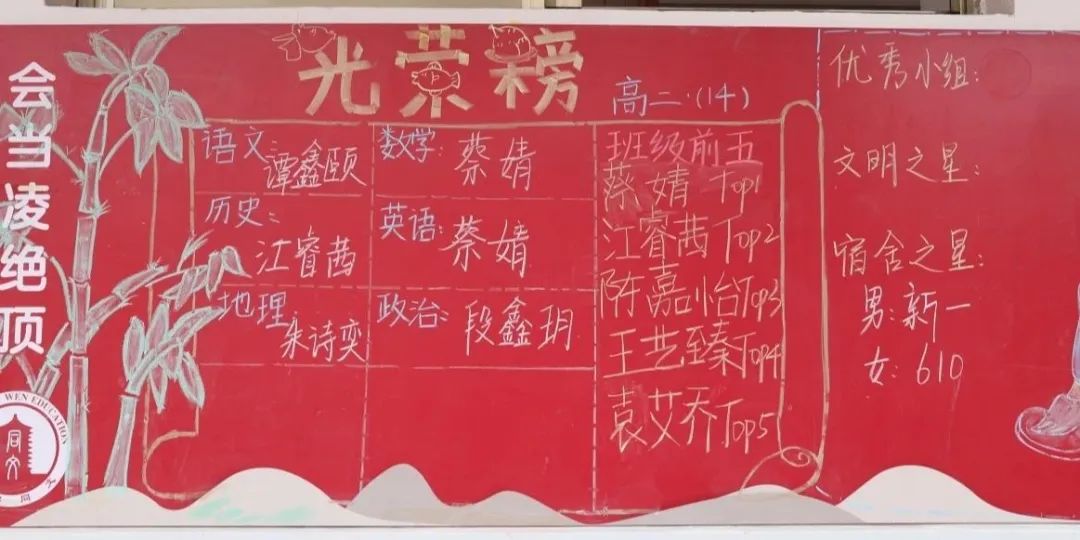 会当凌绝顶
光荣榜
高二·(14)
语文:
谭鑫颐
数学:
蔡婧
历史:
江睿茜
英语:
蔡婧
地理
朱诗奕
政治:
段鑫玥
班级前五
蔡婧 Top1
江睿茜Top2
陈嘉怡Top3
王艺臻Top4
袁艾乔Top5
优秀小组:
文明之星:
宿舍之星:
男:新一
女:610
WEN EDUCATION
同文